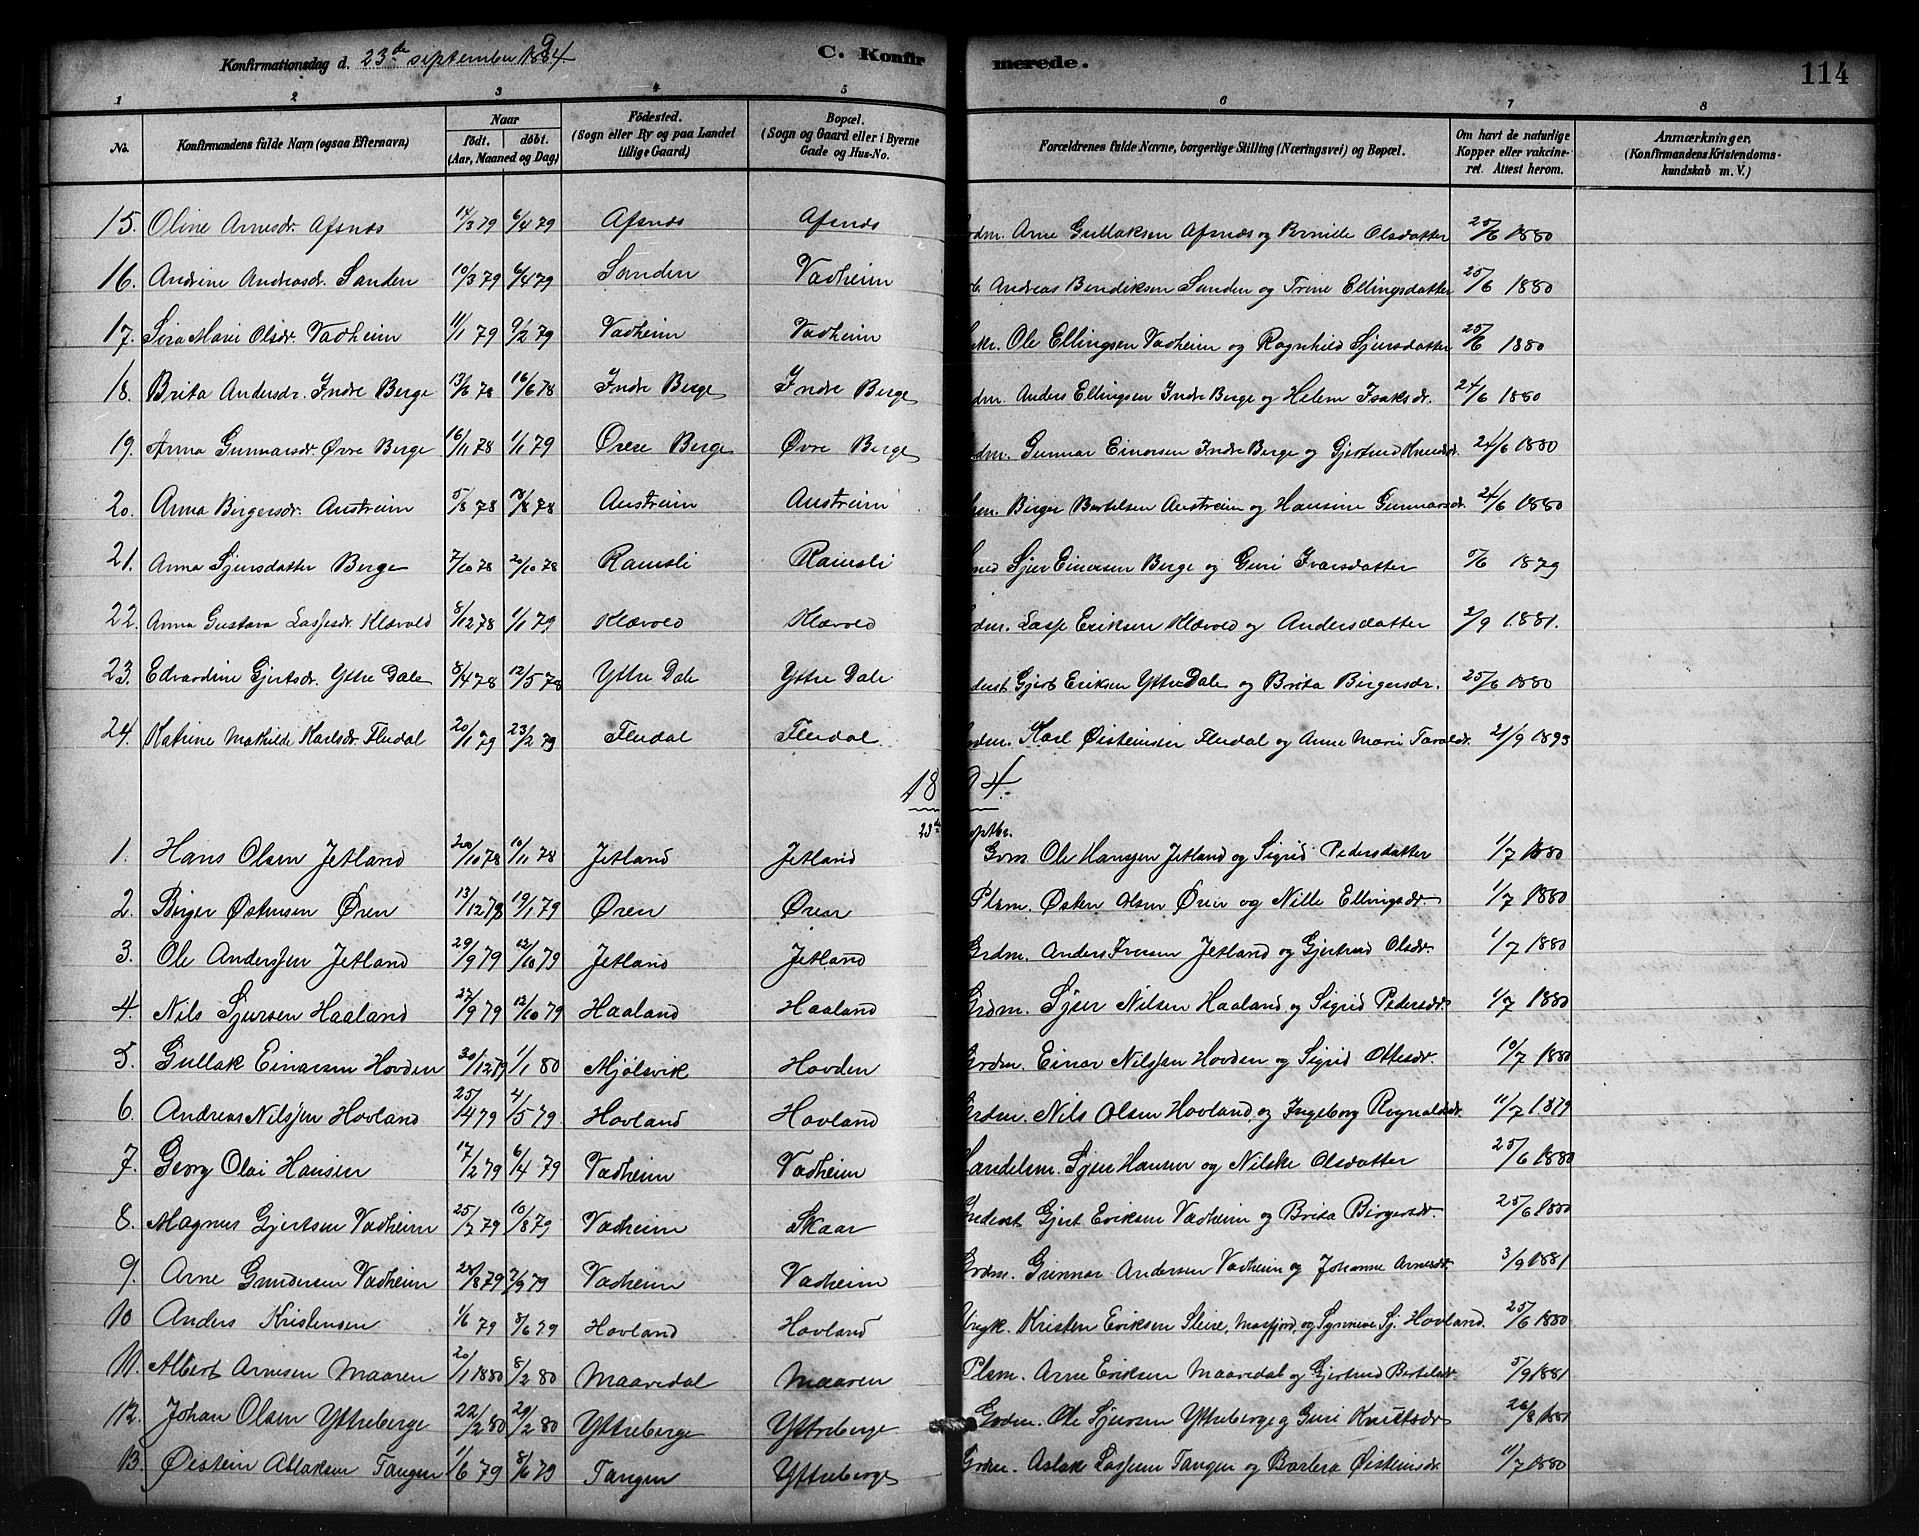 Konfirmationsdag d. 23de september 1894 C. Konfirmerede. 114
1 2 3 4 5 6 7 8
No. Konfirmandens fulde Navn (ogsaa Efternavn) Naar født. døbt. (Aar, Maaned og Dag) Fødested. (Sogn eller By og paa Landet tillige Gaard) Bopæl. (Sogn og Gaard eller i Byerne Gade og Hus-No. Forældrenes fulde Navne, borgerlige Stilling (Næringsvei) og Bopæl. Om havt de naturlige Kopper eller vakcineret. Attest herom. Anmærkninger. (Konfirmandens Kristendomskundskab m. V.)
15. Oline Arnesdr. Afsnæs 14/3 79 6/4 79 Afsnæs Afsnæs Arne Gullaksen Afsnæs og Pernille Olsdatter 25/6 1880
16. Andrine Andreasdr. Sanden 10/3 79 6/4 79 Sanden Vadheim Andreas Bendiksen Sanden og Trine Ellingsdatter 25/6 1880
17. Sera Marie Olsdr. Vadheim 11/1 79 9/2 79 Vadheim Vadheim Ole Ellingsen Vadheim og Ragnhild Sjursdatter 25/6 1880
18. Brita Andersdr. Indre Berge 13/6 78 16/6 78 Indre Berge Indre Berge Anders Ellingsen Indre Berge og Helene Isaksdr. 24/6 1880
19. Anna Gunnarsdr. Øvre Berge 16/11 78 1/1 79 Øvre Berge Øvre Berge Gunnar Einarsen Indre Berge og Gjertrud Knudsdr. 24/6 1880
20. Anna Birgersdr. Austreim 5/8 78 18/8 78 Austreim Austreim Birger Bertelsen Austreim og Hansine Gunnarsdr. 24/6 1880
21. Anna Sjursdatter Berge 7/10 78 20/10 78 Ramsli Ramsli Sjur Einersen Berge og Guri Ivarsdatter 5/6 1879
22. Anna Gustava Lassesdr. Klævold 8/12 78 1/1 79 Klævold Klævold Lasse Eriksen Klævold og Andersdatter 2/9 1881.
23. Edvardine Gjertsdr. Yttre Dale 8/4 78 12/5 78 Yttre Dale Yttre Dale Gjert Eriksen Yttre Dale og Brita Birgersdr. 25/6 1880
24. Katrine Mathilde Karlsdr. Fludal 20/1 79 23/2 79 Fludal Fludal. Karl Øisteinsen Fludal og Anne Marie Taraldr. 21/9 1893
1894.
23de septbr.
1. Hans Olsen Jetland 20/10 78 10/11 78 Jetland Jetland Grm Ole Hanssen Jetland og Sigrid Pedersdatter 1/7 1880
2. Birger Østensen Øren 13/12 78 19/1 79 Øren Øren Plsm. Østen Olsen Øren og Nille Ellingsdr 1/7 1880
3. Ole Anderssen Jetland 29/9 79 12/10 79 Jetland Jetland Grdm. Anders Iversen Jetland og Gjertrud Olsdr. 1/7 1880
4. Nils Sjursen Haaland 27/9 79 12/10 79 Haaland Haaland Grdm. Sjur Nilsen Haaland og Sigrid Pedersdr. 1/7 1880
5. Gullak Einarsen Hovden 30/12 79 1/1 80 Mjølsvik Hovden Grdm. Einar Nilssen Hovden og Sigrid Ottesdr. 10/7 1880
6. Andreas Nilssen Hovland 25/4 79 4/5 79 Hovland Hovland Grdm. Nils Olsen Hovland og Ingeborg Rognaldsdr. 11/7 1879
7. Georg Olai Hansen 17/2 79 6/4 79 Vadheim Vadheim Handelsm. Sjur Hansen og Nilske Olsdatter 25/6 1880
8. Magnus Gjertsen Vadheim 25/7 79 10/8 79 Vadheim Skaar Inderst Gjert Eriksen Vadheim og Brita Birgersdr. 25/6 1880
9. Arne Gundersen Vadheim 28/8 79 7/9 79 Vadheim Vadheim Grdm. Gunnar Andersen Vadheim og Johanne Arnesdr. 3/9 1881
10 Anders Kristensen 1/6 79 8/6 79 Hovland Hovland Ungk. Kristen Eriksen Sleire, Masfjord, og Synneve Sj. Hovland. 25/6 1880
11. Albert Arnesen Maaren 20/1 1880 8/2 80 Maaredal Maaren Plsm. Arne Eriksen Maaredal og Gjertrud Bertelsdr. 5/9 1881
12. Johan Olsen Yttreberge 22/2 80 29/2 80 Yttreberge Yttreberge Grdm. Ole Sjursen Yttreberge og Guri Knutsdr 26/8 1881
13. Øistein Aslaksen Tangen 1/6 79 8/6 79 Tangen Yttreberge Grdm. Aslak Lassesen Tangen og Barbera Øisteinsdr. 11/7 1880